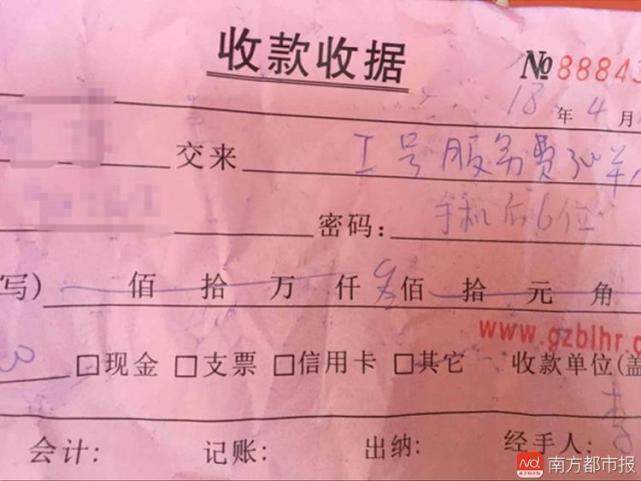 收款收据
№ 88843
18 年 4 月
交来 工号服务费
密码: 手机后6位
写) 佰 拾 万 仟 佰 拾 元 角
www.gzblhr.
□现金 □支票 □信用卡 □其它 收款单位(盖
会计: 记账: 出纳: 经手人: 李
南方都市报